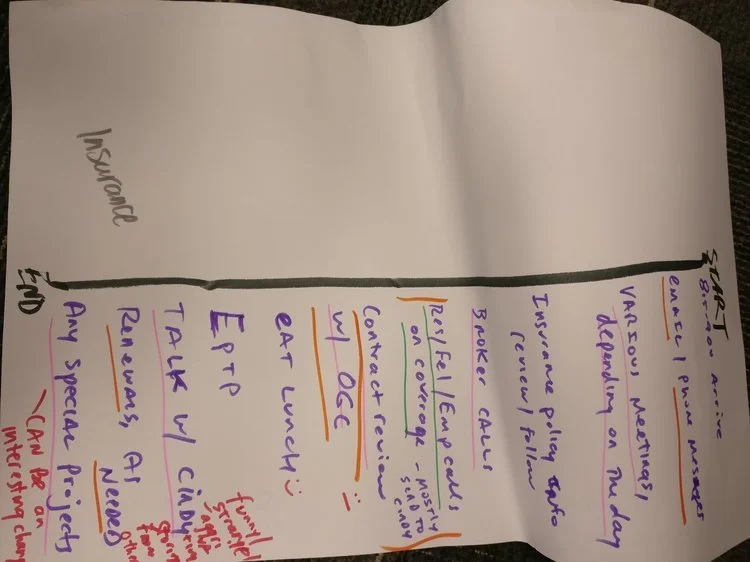 START
Arrive
email / Phone messages
VARIOUS Meetings,
depending on The day
Insurance policy Info
review / follow
BROKER CALLS
Res/Fel/Emp calls
on coverage - MOSTLY
SEND TO
CINDY
Contract review
w/ OGC
eAT LUNCH
EPTP
TALK w/ CINDY
funny/
strange/
stories
from
other
Renewals, As
Needed
Any special projects
CAN be an
interesting
END
Insurance